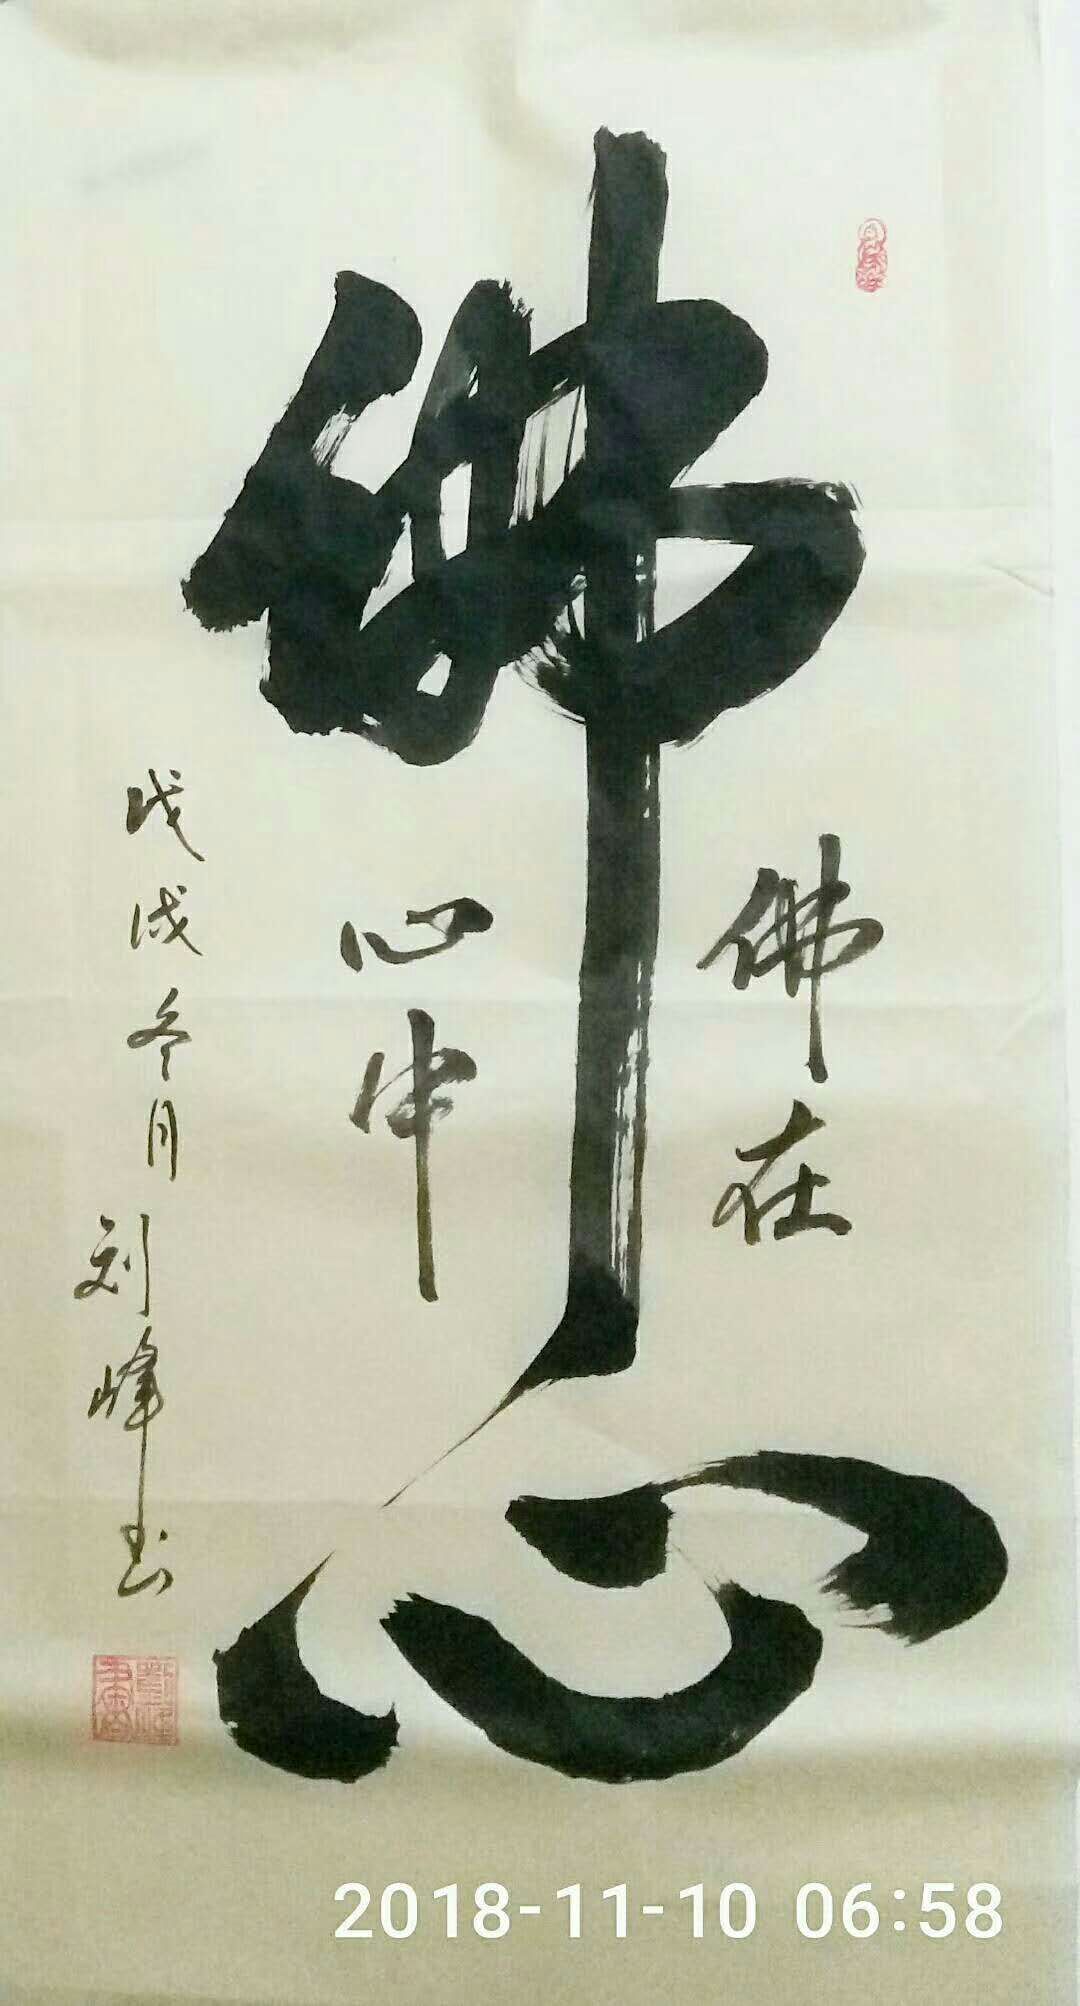 佛心
佛在
心中
戊戌冬月
刘峰书
2018-11-10 06:58